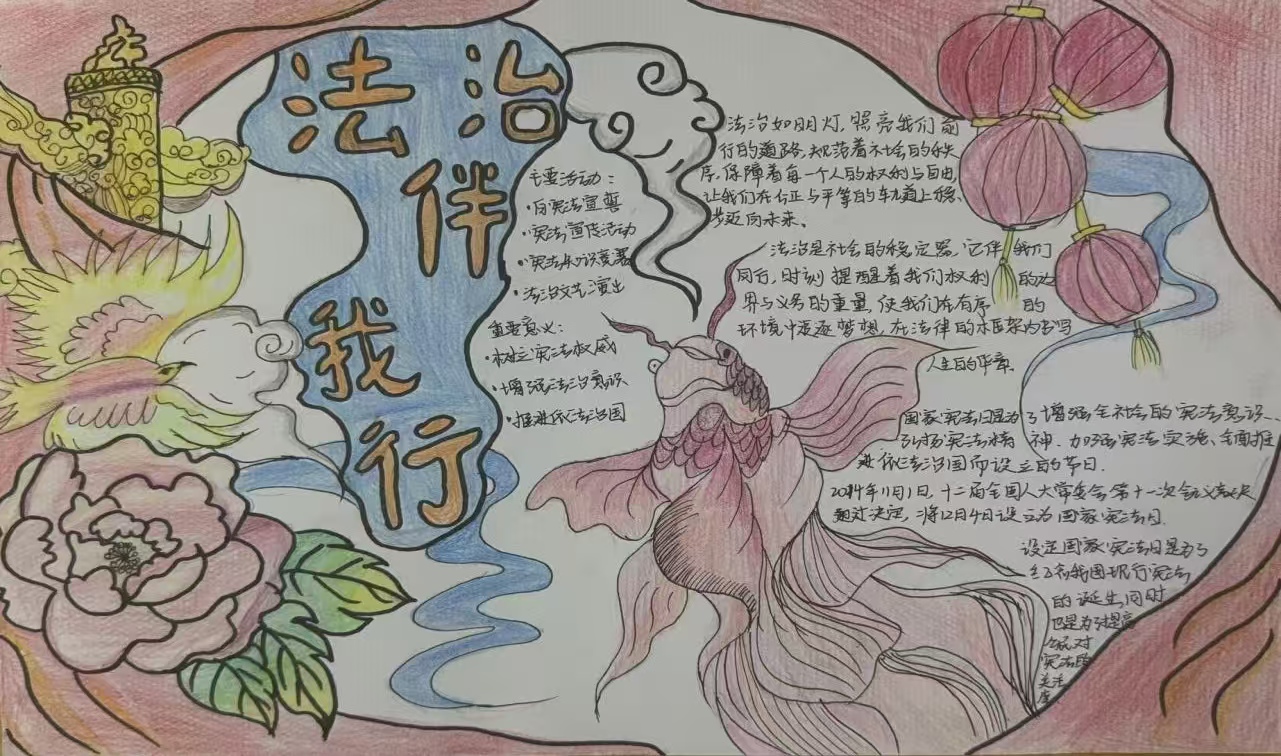 法治
伴
我
行
主要活动：
·向宪法宣誓
·宪法宣传活动
·宪法知识竞赛
·法治文艺演出
重要意义：
·树立宪法权威
·增强法治意识
·推进依法治国
法治如明灯,照亮我们前
行的道路,规范着社会的秩
序,保障着每一个人的权利与自由,
让我们在公正与平等的轨道上稳
步迈向未来。
法治是社会的稳定器,它伴我们
同行,时刻提醒着我们权利的边
界与义务的重量,使我们在有序的
环境中追逐梦想,在法律的框架内书写
人生的华章.
国家宪法日是为了增强全社会的宪法意识、
弘扬宪法精神、加强宪法实施、全面推
进依法治国而设立的节日.
2014年11月1日,十二届全国人大常委会第十一次会议表决
通过决定,将12月4日设立为国家宪法日.
设定国家宪法日是为了
纪念我国现行宪法
的诞生同时
也是为了提高
公民对
宪法的
关注
度